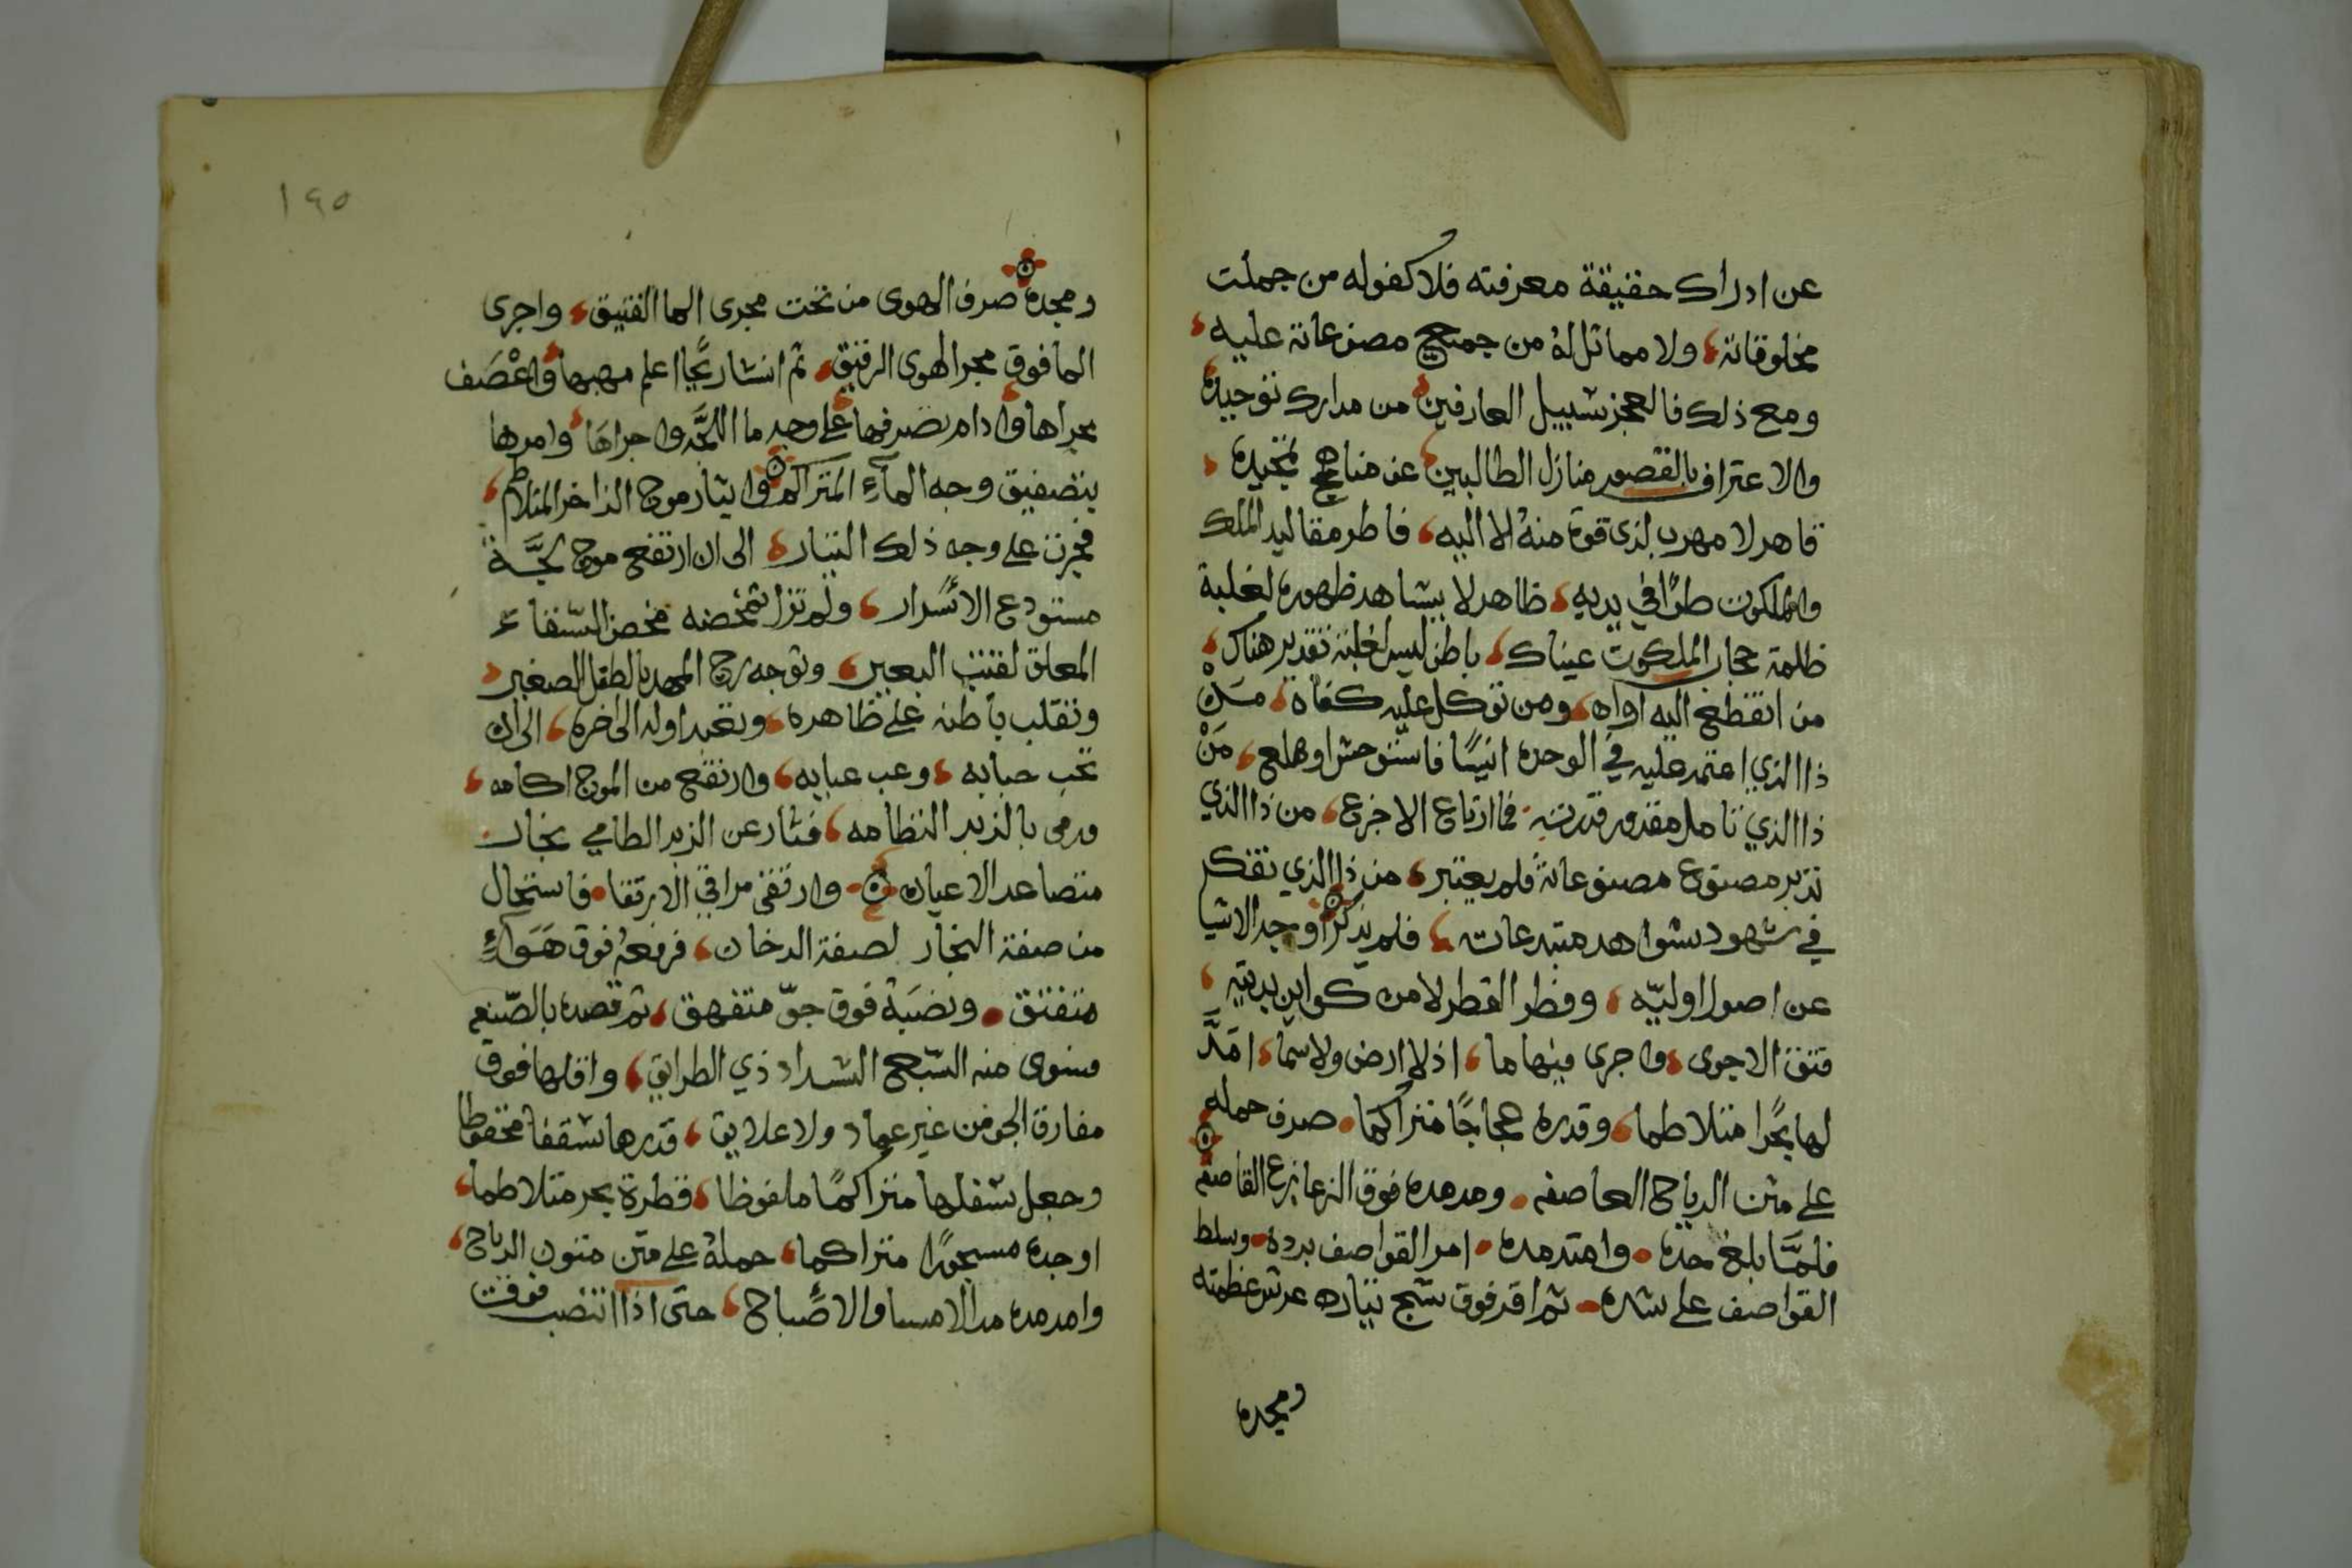 عن ادراك حقيقة معرفته فلا كفوله من جملت
مخلوقاته، ولا مماثل له من جميع مصنوعاته عليه،
ومع ذلك فالعجز سبيل العارفين من مدارك توحيده
والاعتراف بالقصور منازل الطالبين عن مناهج تمجيده،
قاهر لا مهرب لذى قوة منه الا اليه، فاطر مقاليد الملك
والملكوت طرًا في يديه، ظاهر لا يشاهد ظهوره لغلبة
ظلمة حجاب الملكوت عيناك، باطن ليس لغلبة تقدير هناك،
من انقطع اليه اواه، ومن توكل عليه كفاه، مَنْ
ذا الذي اعتمد عليه في الوحده انيسًا فاستوحش او هلع، مَنْ
ذا الذي تامل مقدور قدرته فما ارتاع الا خزع، من ذا الذي
تدبر مصنوع مصنوعاته فلم يعتبر، من ذا الذي تفكر
في شهود شواهد مبتدعاته، فلم يذكر اوجد الاشيا
عن اصول اوليّه، وفطر الفطر لا من كواين بديّه،
فتق الاجوى، واجرى فيها ما، اذ لا ارض ولا سما، امَدَّ
لها بحرًا متلاطما، وقدره عجاجًا متراكما، صرف حمله
على متن الرياح العاصفه، ومدمده فوق الزعازع القاصفه
فلمَّا بلغ حده، وامتد مده، امر القواصف برده، وسلط
القواصف على شده، ثم اقر فوق شج تياره عرش عظمته
ومجده
١٤٥
ومجده صرف الهوى من تحت مجرى الما الفتيق، واجرى
الما فوق مجرا الهوى الرقيق، ثم انشا ريحًا اعلم مهبها واعْصَف
مجراها وادام تصرفها على وجه ما اللجَّه واجراها وامرها
بتصفيق وجه المآءِ المتراكم واثار موج الزاخر المتلاطم،
فجرت على وجه ذلك التيار، الى ان ارتفع موج لجَّة
مستودع الاسرار، ولم تزل تمخضه مخض السّقاء
المعلق لقتب البعير، وتوجه رج المهد بالطفل الصغير،
وتقلب باطنه على ظاهره، وتعيد اوله الى اخره، الى ان
عب حبابه، وعب عبابه، وارتفع من الموج اكامه،
ورمى بالزبد النظامه، فثار عن الزبد الطامي بخار
متصاعد الاعيان، وارتقى مراقي الارتقا، فاستحال
من صفة البخار لصفة الدخان، فرفعه فوق هَوَآءٍ
منفتق، ونصَبَهُ فوق جوّ متفهق، ثم قصده بالصّنع
فسوى منه السّبع الشداد ذي الطرايق، واقلها فوق
مفارق الجو من غير عماد ولا علايق، قدرها سقفا محفوظا
وجعل سفلها متراكمًا ملفوظا، قطرة بحر متلاطما،
اوجده مسجورًا متراكما، حمله على متن متون الرياح،
وامد مده مد الامسا والاصباح، حتى اذا انتصب فوقت